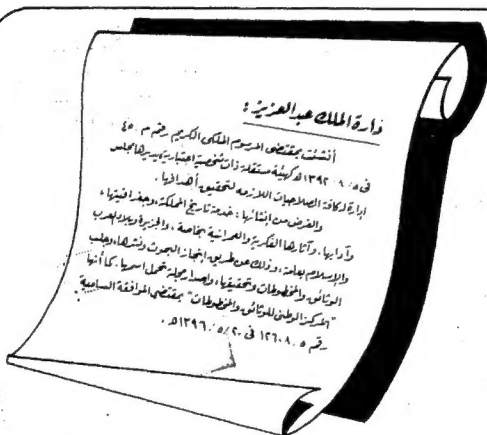 دارة الملك عبد العزيز :
أنشئت بمقتضى المرسوم الملكي الكريم رقم م / ٤٥
في ٥ / ٨ / ١٣٩٢ هـ كهيئة مستقلة ذات شخصية اعتبارية يديرها مجلس
إدارة له كافة الصلاحيات اللازمة لتحقيق أهدافها .
والغرض من إنشائها : خدمة تاريخ المملكة ، وجغرافيتها ،
وآدابها ، وآثارها الفكرية والعمرانية بخاصة ، والجزيرة وبلاد العرب
والإسلام بعامة ، وذلك عن طريق إنجاز البحوث ونشرها ، وجلب
الوثائق والمخطوطات وتحقيقها ، وإصدار مجلة تحمل اسمها . كما أنها
"المركز الوطني للوثائق والمخطوطات" بمقتضى الموافقة السامية
رقم ٥ / ١٢٦٠٨ في ٢٠ / ٥ / ١٣٩٦ هـ .